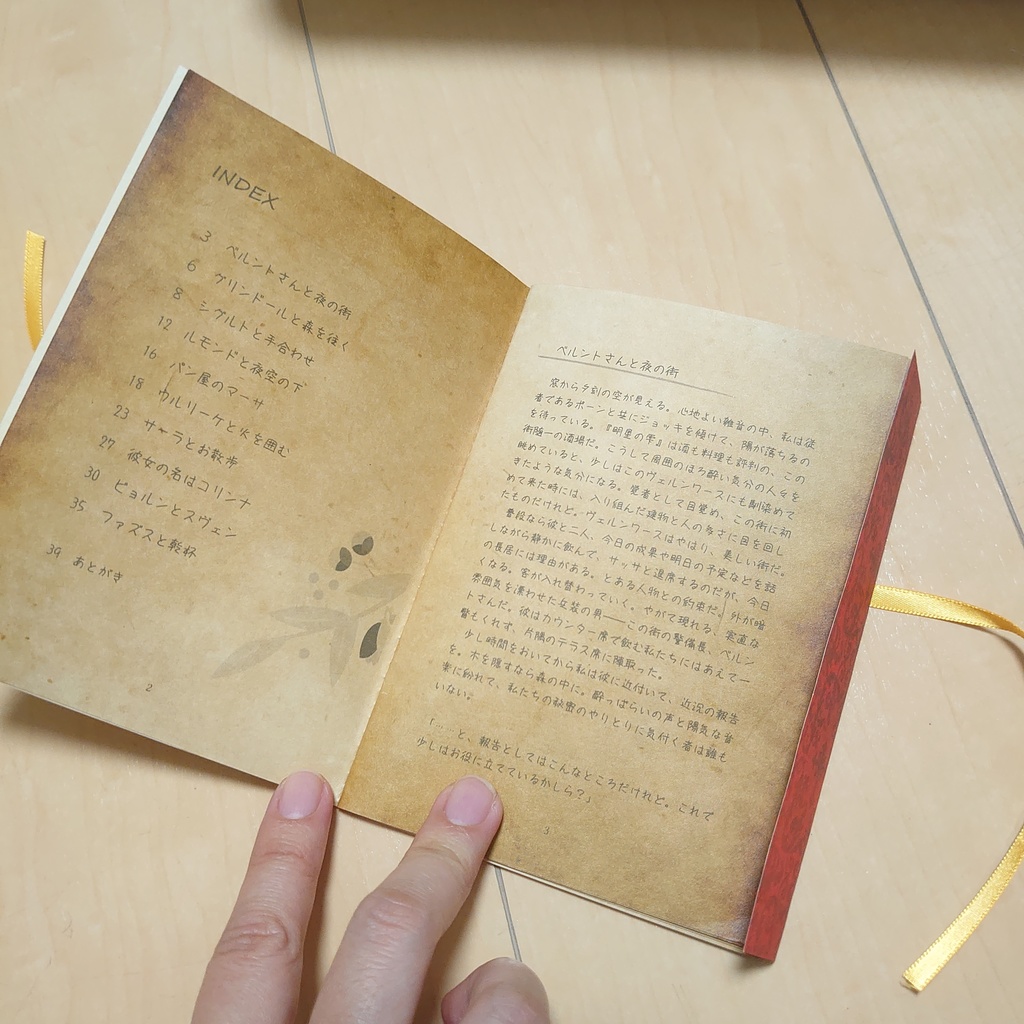 INDEX
3 ベルントさんと夜の街
6 グリンドールと森を往く
8 シグルトと手合わせ
12 ルモンドと夜空の下
16 パン屋のマーサ
18 ウルリーケと火を囲む
23 サーラとお散歩
27 彼女の名はコリンナ
30 ビョルンとスヴェン
35 ファズスと乾杯
39 あとがき
2
ベルントさんと夜の街
窓から夕刻の空が見える。心地よい雑音の中、私は従
者であるポーンと共にジョッキを傾けて、陽が落ちるの
を待っている。『明星の雫』は酒も料理も評判の、この
街随一の酒場だ。こうして周囲のほろ酔い気分の人々を
眺めていると、少しはこのヴェルンワースにも馴染めて
きたような気分になる。覚者として目覚め、この街に初
めて来た時には、入り組んだ建物と人の多さに目を回し
たものだけれど。ヴェルンワースはやはり、美しい街だ。
普段なら彼と二人、今日の成果や明日の予定などを話
しながら静かに飲んで、サッサと退席するのだが、今日
の長居には理由がある。とある人物との約束だ。外が暗
くなる。客が入れ替わっていく。やがて現れる、実直な
雰囲気を漂わせた女装の男――この街の警備長、ベルン
トさんだ。彼はカウンター席で飲む私たちにはあえて一
瞥もくれず、片隅のテラス席に陣取った。
少し時間をおいてから私は彼に近付いて、近況の報告
を。木を隠すなら森の中に。酔っぱらいの声と陽気な音
楽に紛れて、私たちの秘密のやりとりに気付く者は誰も
いない。
「…と、報告としてはこんなところだけれど。これで
少しはお役に立てているかしら？」
3